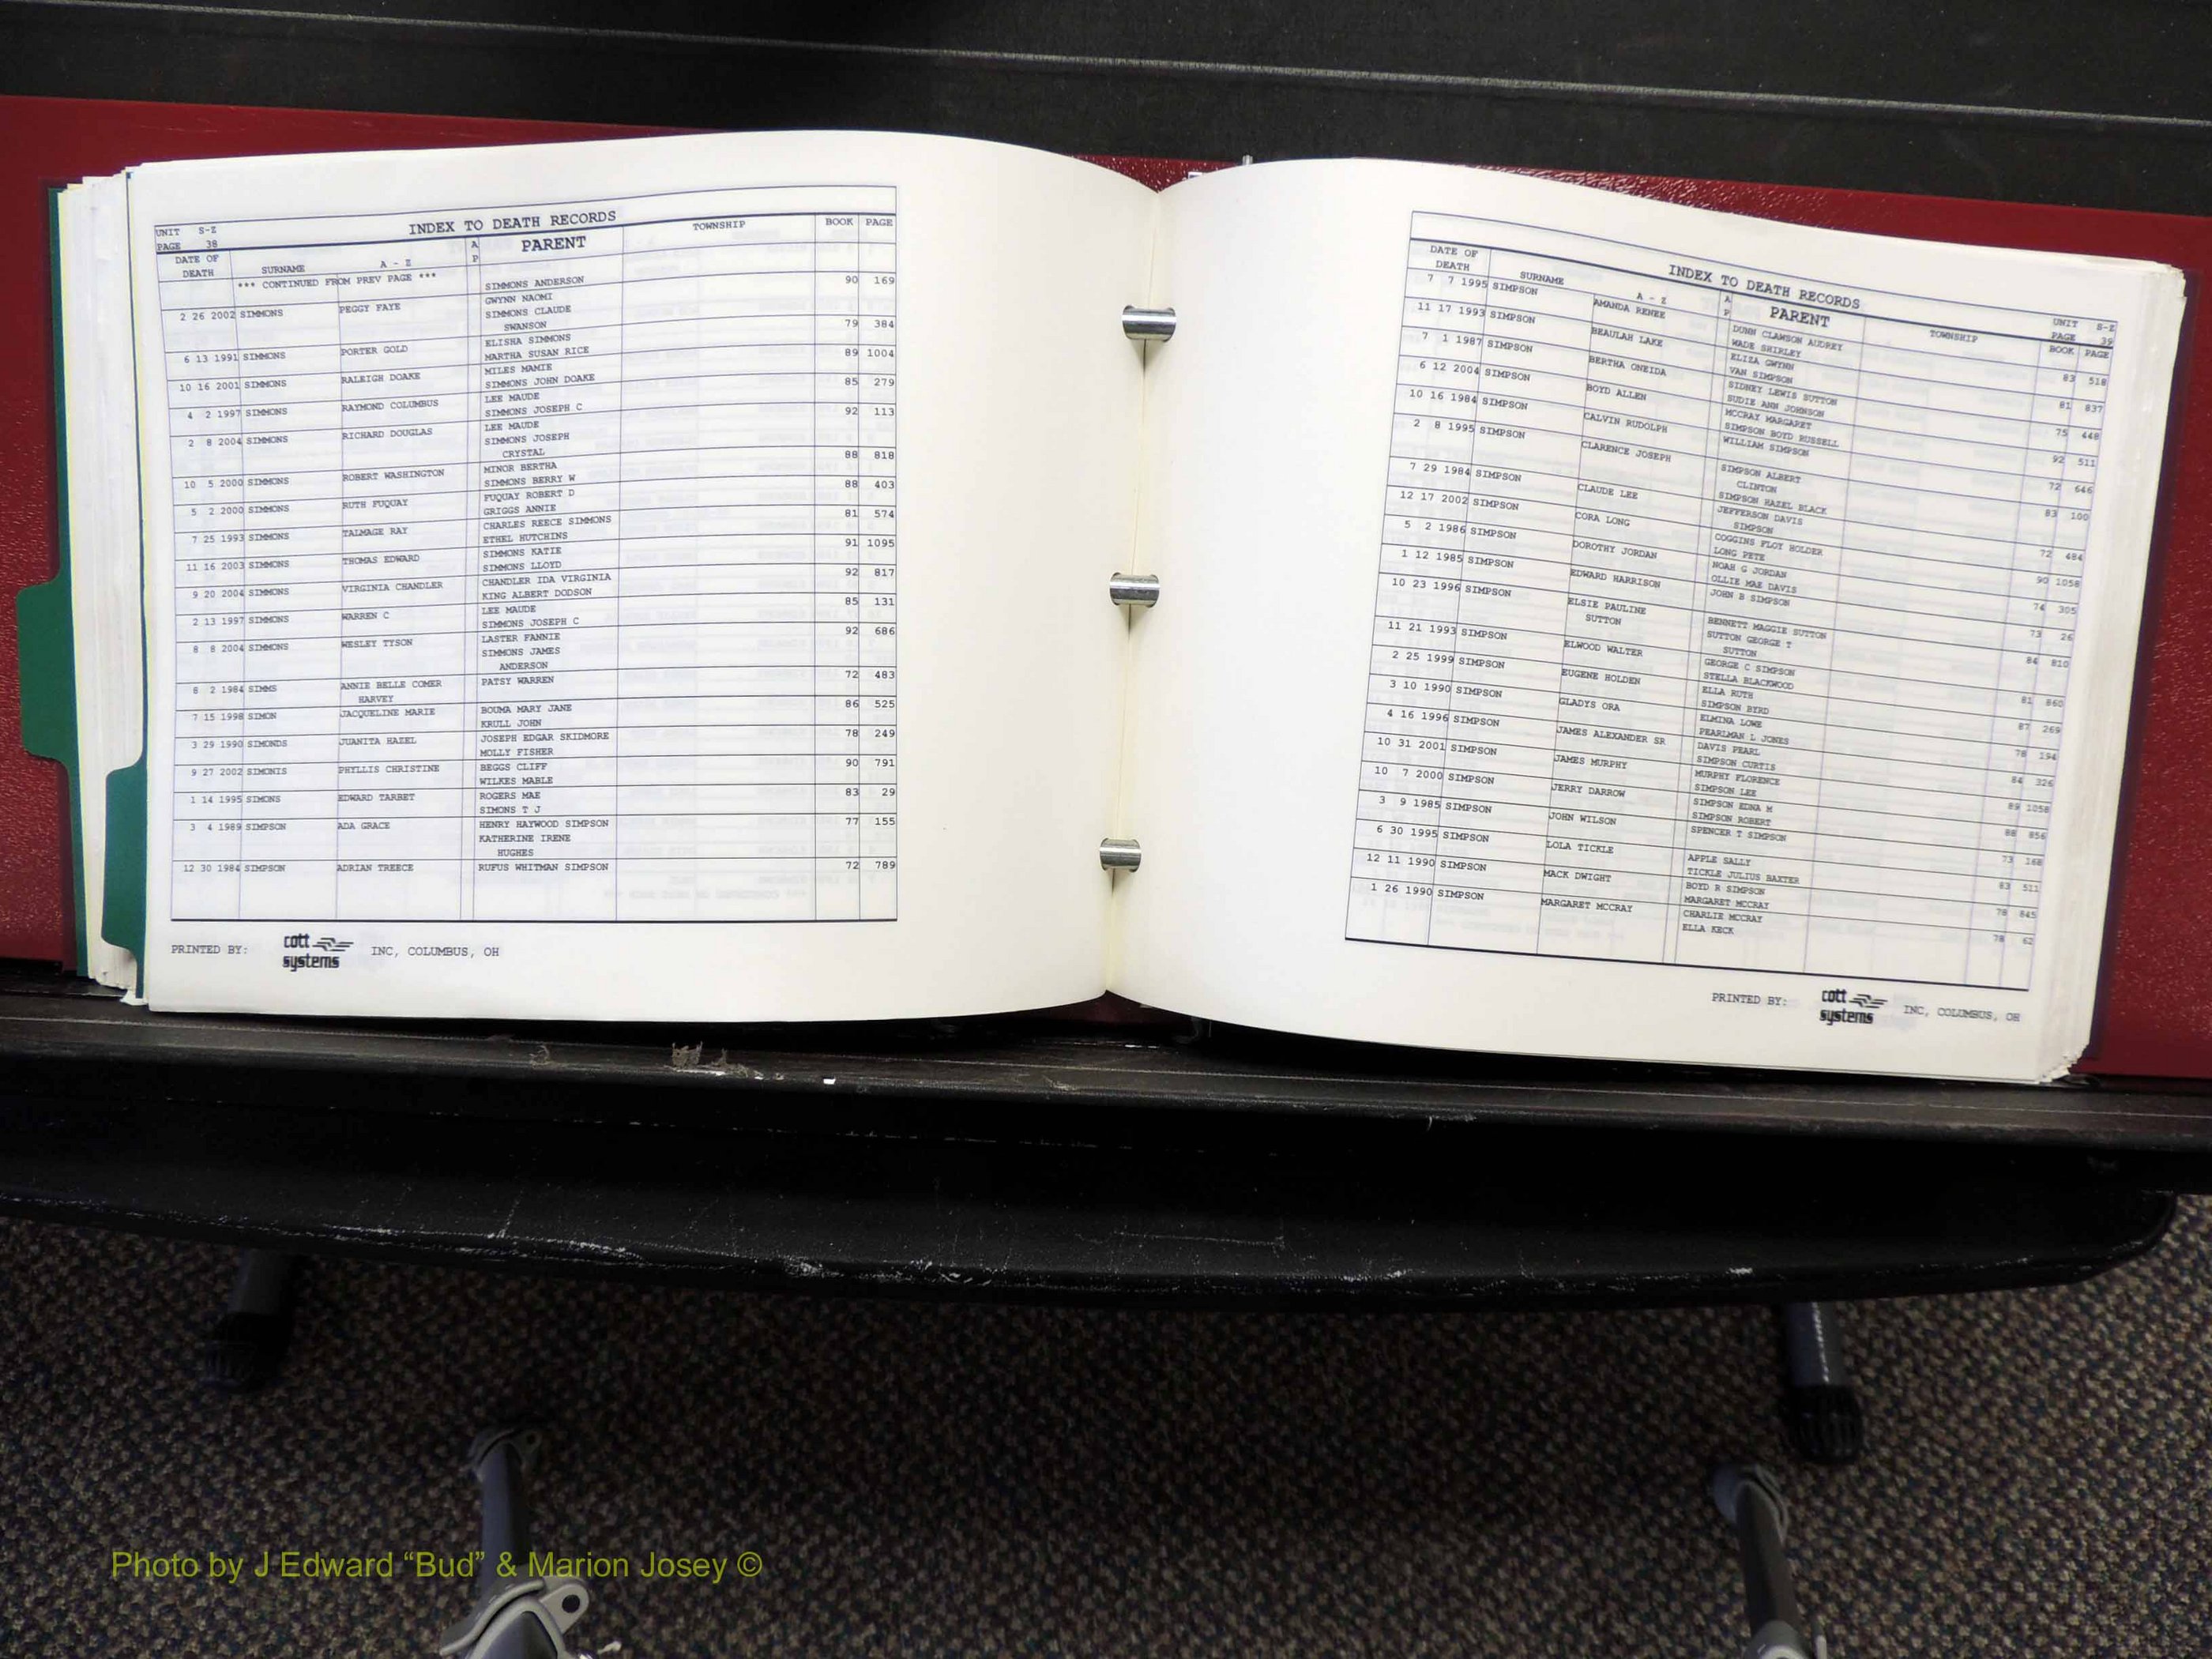 UNIT S-Z
PAGE 38
INDEX TO DEATH RECORDS
DATE OF DEATH SURNAME A - Z AP PARENT TOWNSHIP BOOK PAGE
*** CONTINUED FROM PREV PAGE *** SIMMONS ANDERSON 90 169
2 26 2002 SIMMONS PEGGY FAYE GWYNN NAOMI
SIMMONS CLAUDE
SWANSON
6 13 1991 SIMMONS PORTER GOLD ELISHA SIMMONS 79 384
MARTHA SUSAN RICE
10 16 2001 SIMMONS RALEIGH DOAKE MILES MAMIE 89 1004
SIMMONS JOHN DOAKE
4 2 1997 SIMMONS RAYMOND COLUMBUS LEE MAUDE 85 279
SIMMONS JOSEPH C
2 8 2004 SIMMONS RICHARD DOUGLAS LEE MAUDE 92 113
SIMMONS JOSEPH
CRYSTAL
10 5 2000 SIMMONS ROBERT WASHINGTON MINOR BERTHA 88 818
SIMMONS BERRY W
5 2 2000 SIMMONS RUTH FUQUAY FUQUAY ROBERT D 88 403
GRIGGS ANNIE
7 25 1993 SIMMONS TALMAGE RAY CHARLES REECE SIMMONS 81 574
ETHEL HUTCHINS
11 16 2003 SIMMONS THOMAS EDWARD SIMMONS KATIE 91 1095
SIMMONS LLOYD
9 20 2004 SIMMONS VIRGINIA CHANDLER CHANDLER IDA VIRGINIA 92 817
KING ALBERT DODSON
2 13 1997 SIMMONS WARREN C LEE MAUDE 85 131
SIMMONS JOSEPH C
8 8 2004 SIMMONS WESLEY TYSON LASTER FANNIE 92 686
SIMMONS JAMES
ANDERSON
8 2 1984 SIMMS ANNIE BELLE COMER PATSY WARREN 72 483
HARVEY
7 15 1998 SIMON JACQUELINE MARIE BOUMA MARY JANE 86 525
KRULL JOHN
3 29 1990 SIMONDS JUANITA HAZEL JOSEPH EDGAR SKIDMORE 78 249
MOLLY FISHER
9 27 2002 SIMONIS PHYLLIS CHRISTINE BEGGS CLIFF 90 791
WILKES MABLE
1 14 1995 SIMONS EDWARD TARBET ROGERS MAE 83 29
SIMONS T J
3 4 1989 SIMPSON ADA GRACE HENRY HAYWOOD SIMPSON 77 155
KATHERINE IRENE
HUGHES
12 30 1984 SIMPSON ADRIAN TREECE RUFUS WHITMAN SIMPSON 72 789
PRINTED BY: cott systems INC, COLUMBUS, OH
INDEX TO DEATH RECORDS
UNIT S-Z
PAGE 39
DATE OF DEATH SURNAME A - Z AP PARENT TOWNSHIP BOOK PAGE
7 7 1995 SIMPSON AMANDA RENEE DUNN CLAWSON AUDREY 83 518
WADE SHIRLEY
11 17 1993 SIMPSON BEAULAH LAKE ELIZA GWYNN 81 837
VAN SIMPSON
7 1 1987 SIMPSON BERTHA ONEIDA SIDNEY LEWIS SUTTON 75 448
SUDIE ANN JOHNSON
6 12 2004 SIMPSON BOYD ALLEN MCCRAY MARGARET 92 511
SIMPSON BOYD RUSSELL
10 16 1984 SIMPSON CALVIN RUDOLPH WILLIAM SIMPSON 72 646
2 8 1995 SIMPSON CLARENCE JOSEPH SIMPSON ALBERT 83 100
CLINTON
SIMPSON HAZEL BLACK
7 29 1984 SIMPSON CLAUDE LEE JEFFERSON DAVIS 72 484
SIMPSON
12 17 2002 SIMPSON CORA LONG COGGINS FLOY HOLDER 90 1058
LONG PETE
5 2 1986 SIMPSON DOROTHY JORDAN NOAH G JORDAN 74 305
OLLIE MAE DAVIS
1 12 1985 SIMPSON EDWARD HARRISON JOHN B SIMPSON 73 26
10 23 1996 SIMPSON ELSIE PAULINE BENNETT MAGGIE SUTTON 84 810
SUTTON SUTTON GEORGE T
SUTTON
11 21 1993 SIMPSON ELWOOD WALTER GEORGE C SIMPSON 81 860
STELLA BLACKWOOD
2 25 1999 SIMPSON EUGENE HOLDEN ELLA RUTH 87 269
SIMPSON BYRD
3 10 1990 SIMPSON GLADYS ORA ELMINA LOWE 78 194
PEARLMAN L JONES
4 16 1996 SIMPSON JAMES ALEXANDER SR DAVIS PEARL 84 326
SIMPSON CURTIS
10 31 2001 SIMPSON JAMES MURPHY MURPHY FLORENCE 89 1058
SIMPSON LEE
10 7 2000 SIMPSON JERRY DARROW SIMPSON EDNA M 88 856
SIMPSON ROBERT
3 9 1985 SIMPSON JOHN WILSON SPENCER T SIMPSON 73 168
6 30 1995 SIMPSON LOLA TICKLE APPLE SALLY 83 511
TICKLE JULIUS BAXTER
12 11 1990 SIMPSON MACK DWIGHT BOYD R SIMPSON 78 845
MARGARET MCCRAY
1 26 1990 SIMPSON MARGARET MCCRAY CHARLIE MCCRAY 78 62
ELLA KECK
PRINTED BY: cott systems INC, COLUMBUS, OH
Photo by J Edward “Bud” & Marion Josey ©